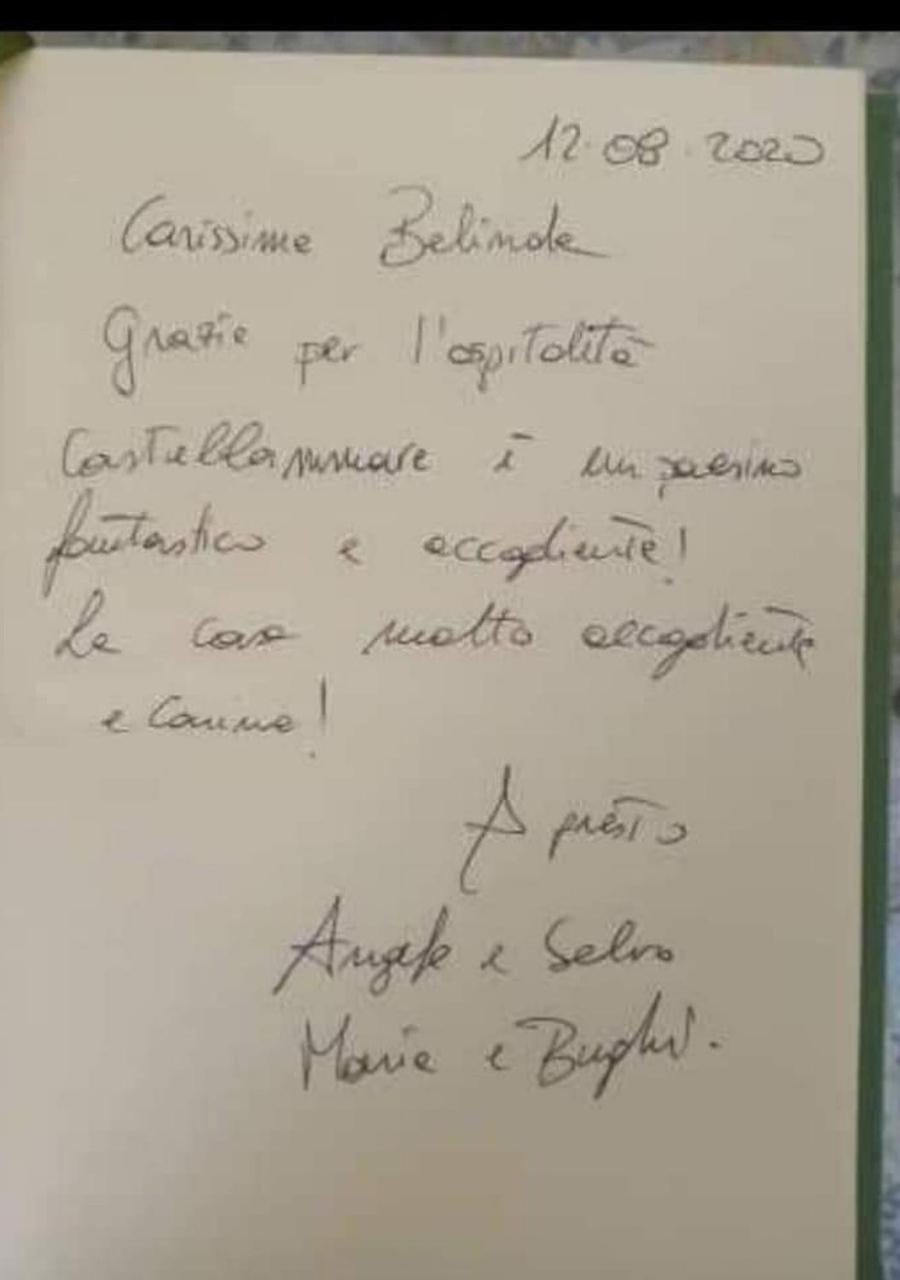 12.08.2020
Carissima Belinda
Grazie per l'ospitalità
Castellammare è un paesino
fantastico e accogliente!
La casa molto accogliente
e carina!
A presto
Angela e Salvo
Maria e Bughi.